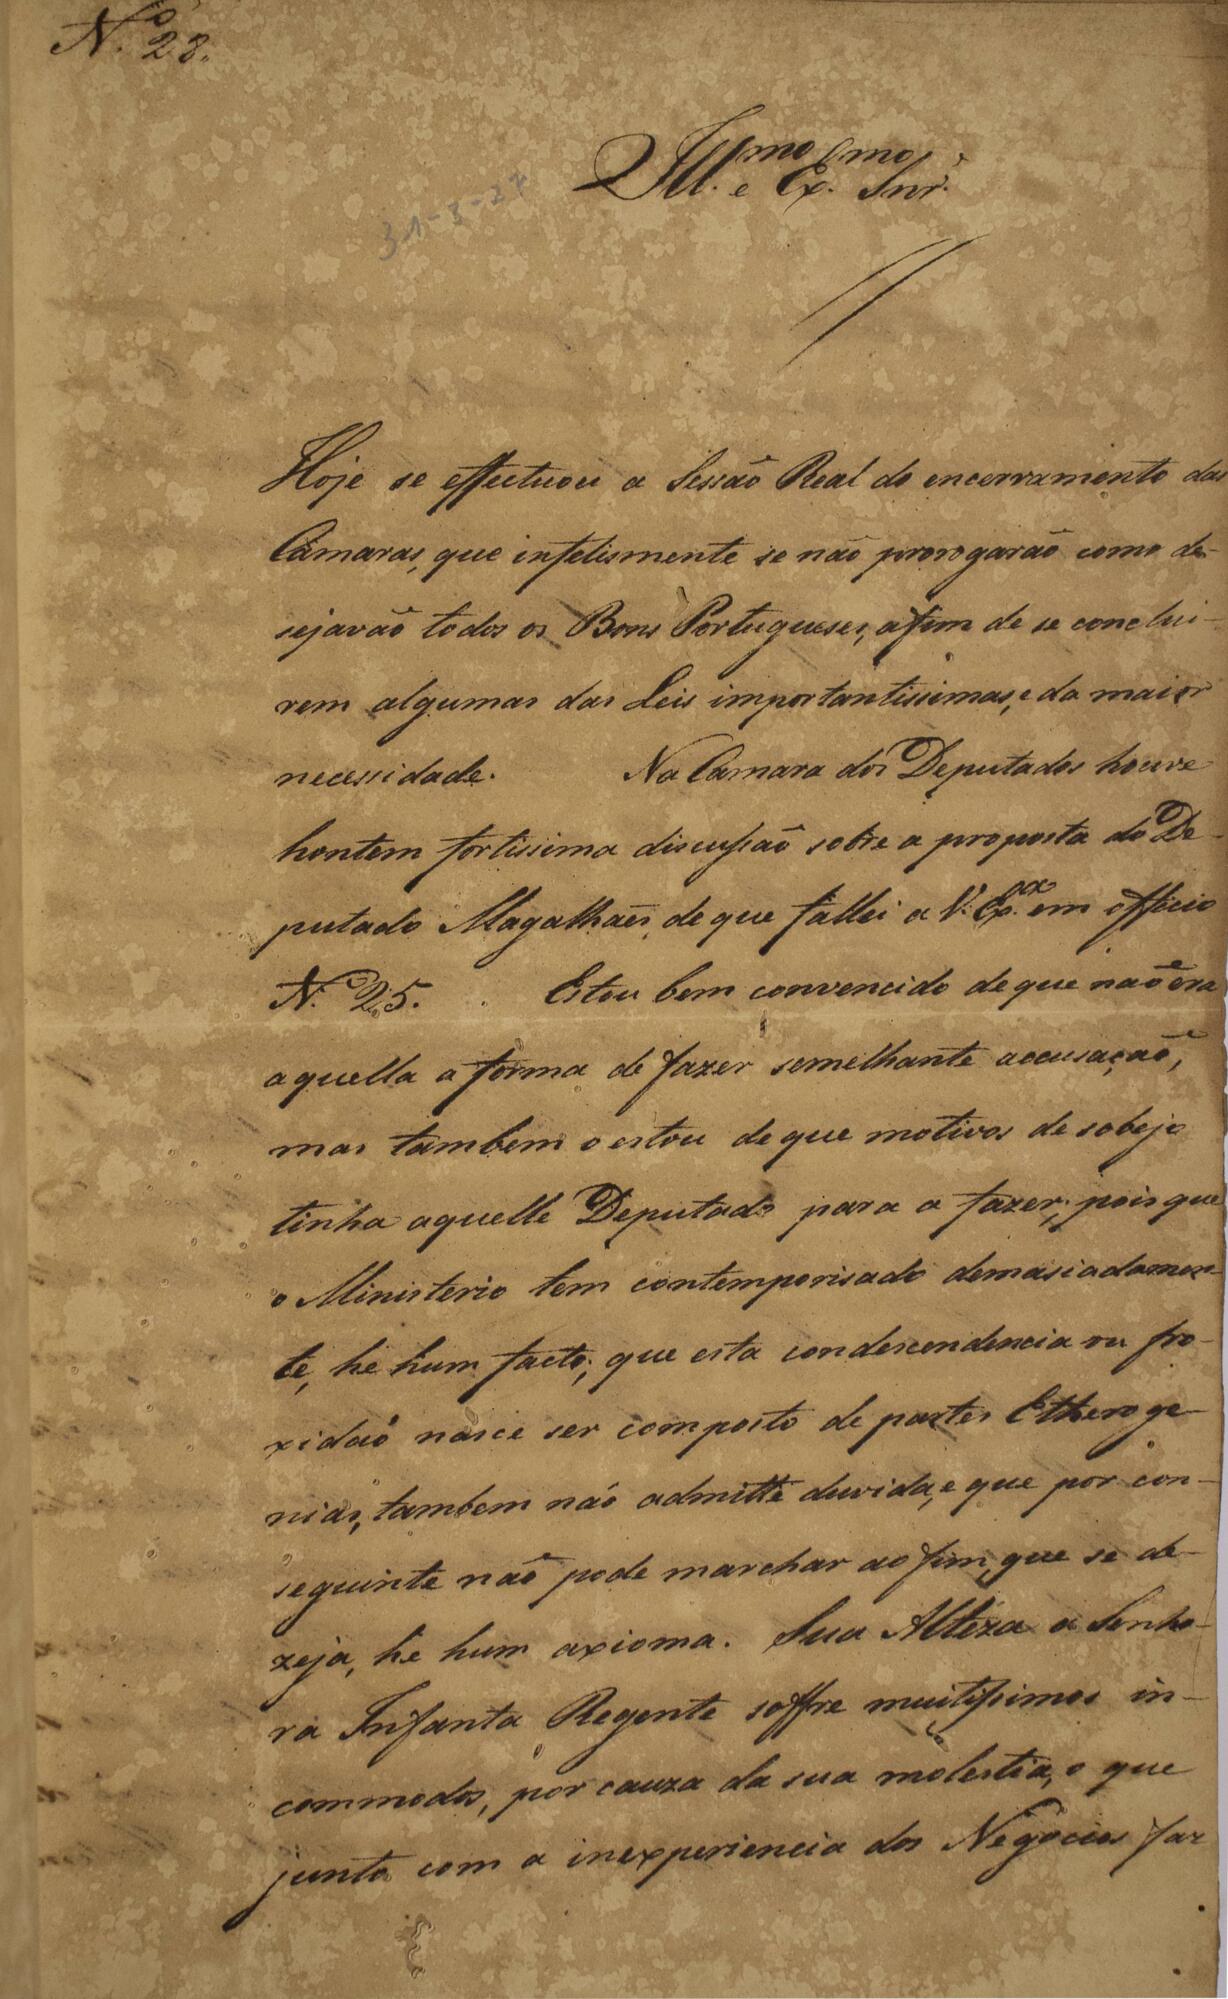 N.º 28.
Ill.mo e Ex.mo Snr.
31-3-27
Hoje se effectuou a Sessão Real do encerramento das
Câmaras, que infelismente se não prorogarão como de-
sejavão todos os Bons Portugueses, afim de se conclui-
rem algumas das Leis importantissimas, e da maior
necessidade. Na Camara dos Deputados houve
hontem fortissima discussão sobre a proposta do De-
putado Magalhães, de que fallei a V. Ex.ª em officio
N. 25. Estou bem convencido de que não era
aquella a forma de fazer semelhante accusação,
mas tambem o estou de que motivos de sobejo
tinha aquelle Deputado para a fazer; pois que
o Ministerio tem contemporisado demasiadamen-
te, he hum facto; que esta condescendencia ou fro-
xidão nasce ser composto de partes Etheroge-
nias, tambem não admitte duvida, e que por con-
seguinte não pode marchar ao fim, que se de-
zeja, he hum axioma. Sua Alteza a Senho-
ra Infanta Regente soffre muitissimos in-
commodos, por cauza da sua molestia, o que
junto com a inexperiencia dos Negocios faz